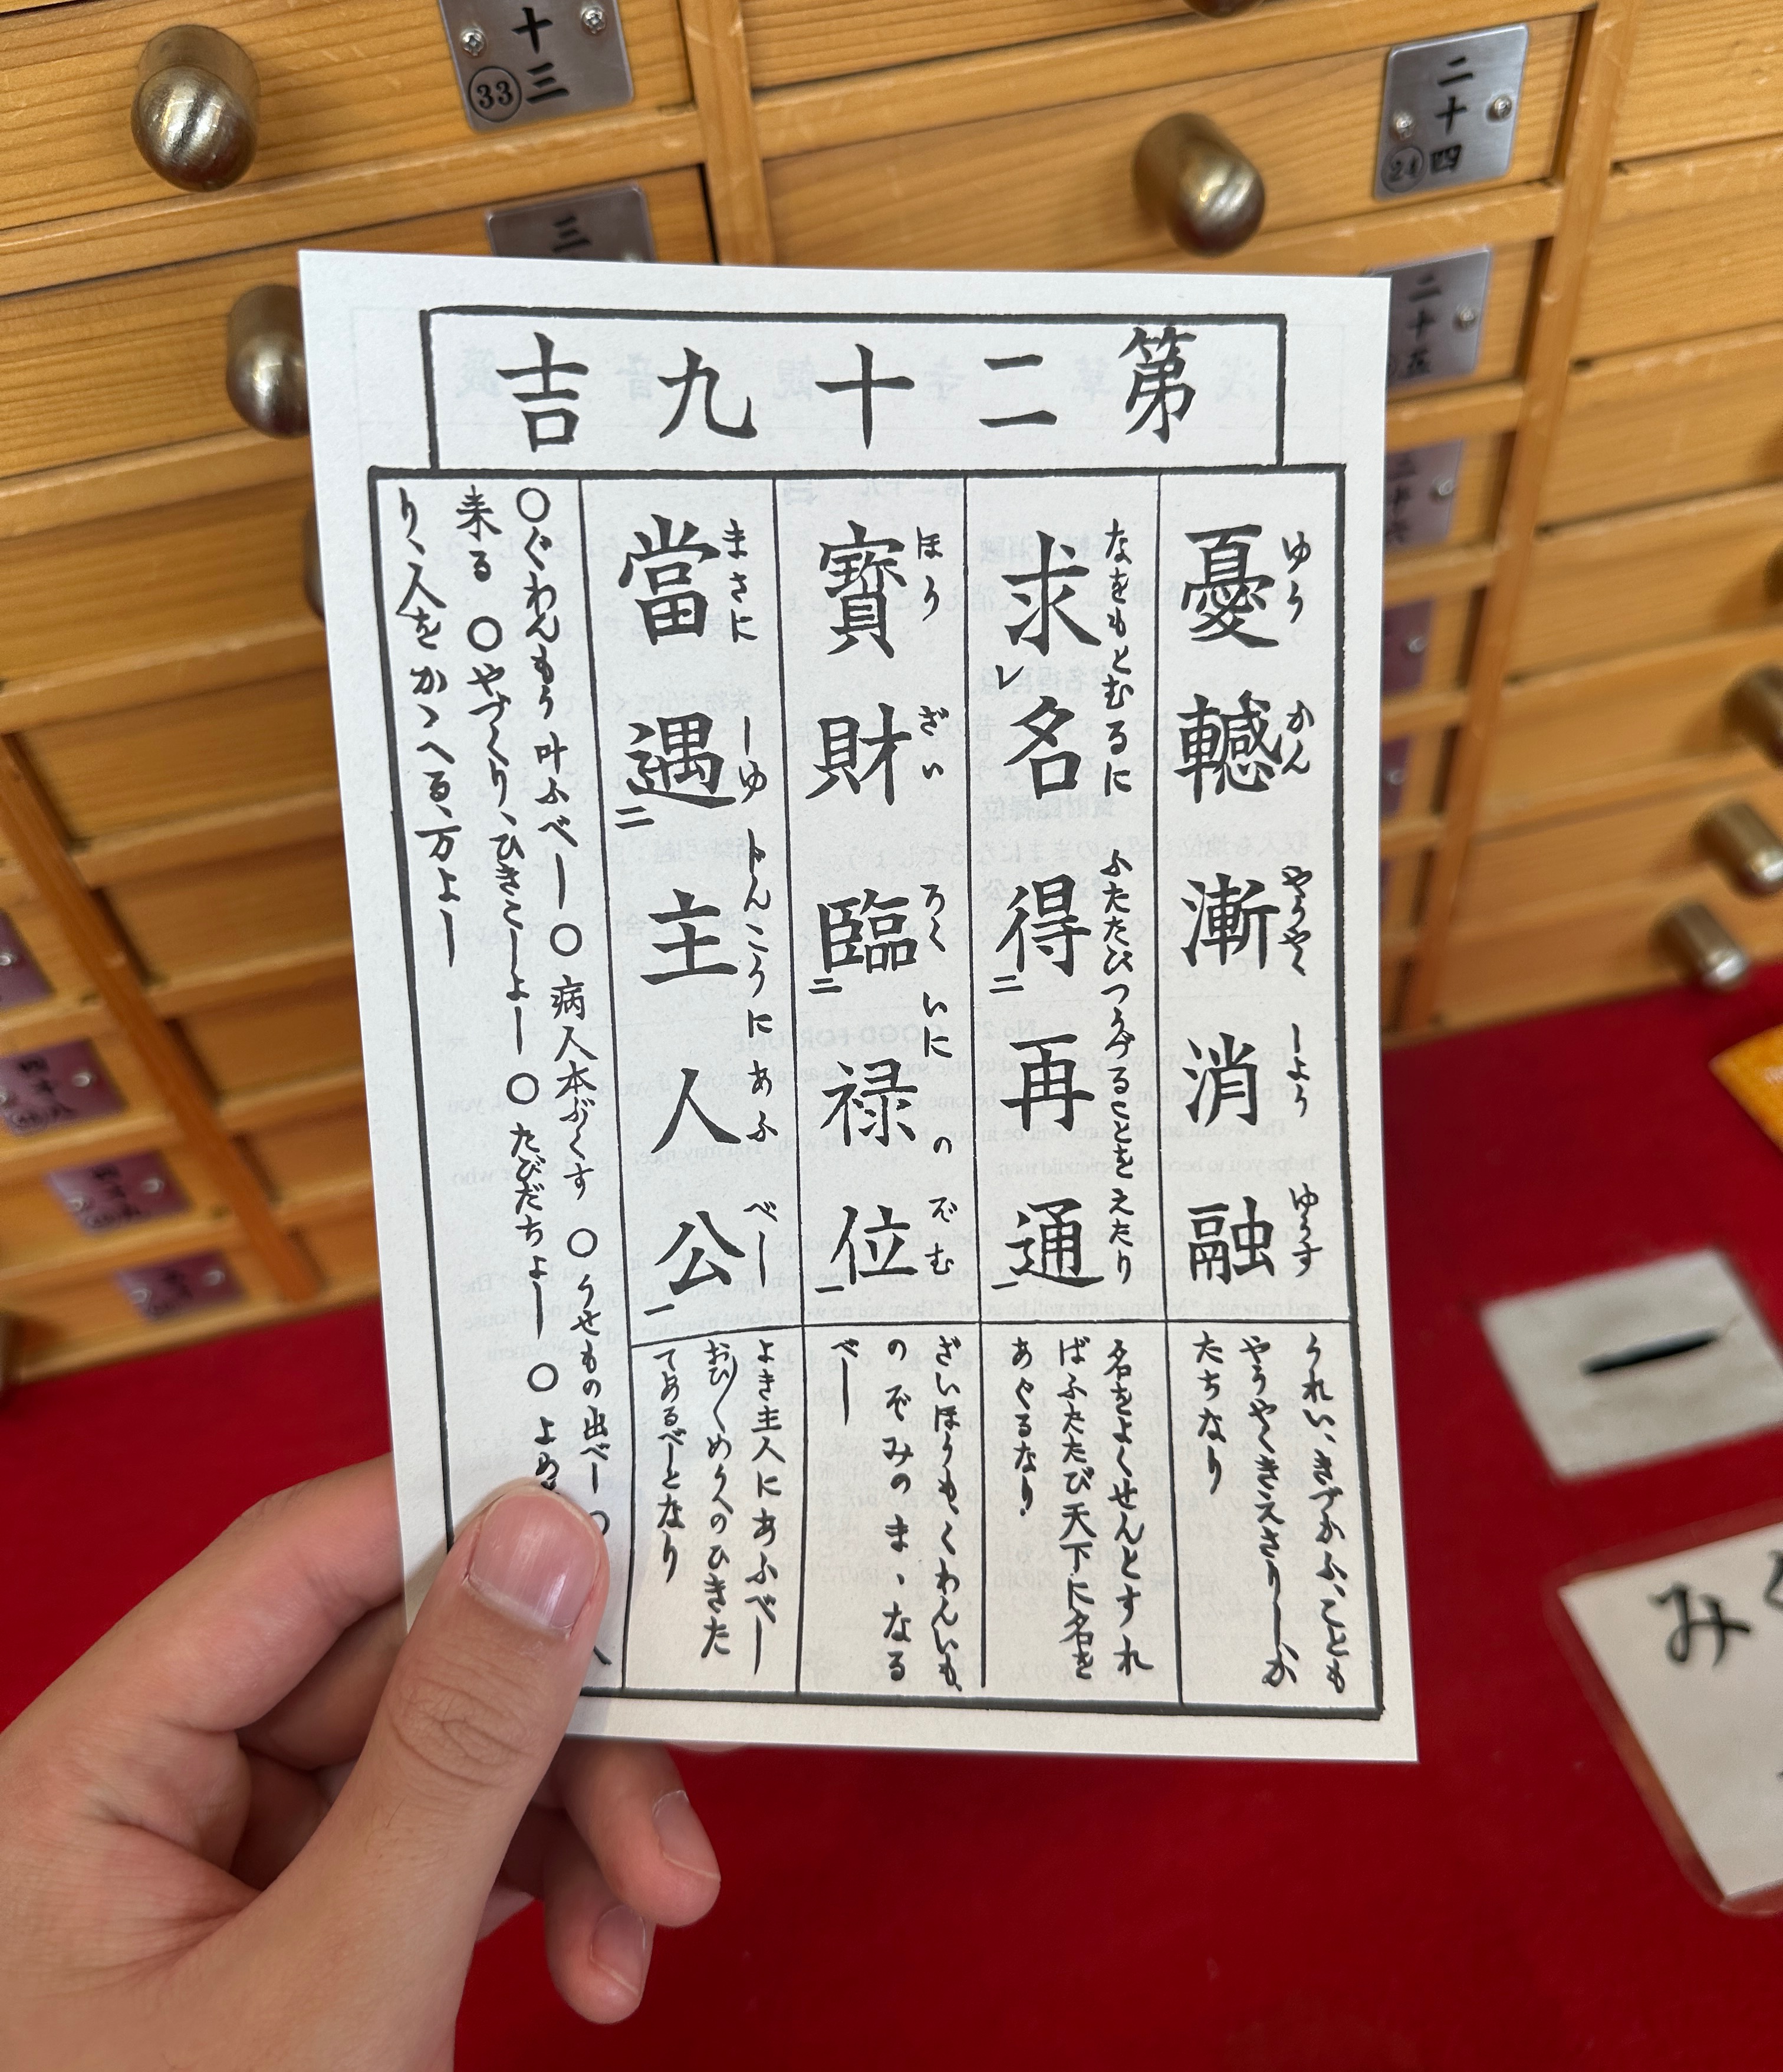 第二十九吉
憂轗漸消融
ゆうかんやうやくしようゆうす
うれい、きづかふ、ことも
やうやくきえさりしか
たちなり
求レ名得二再通一
なをもとむるにふたたびつうずることをえたり
名をよくせんとすれ
ばふたたび天下に名を
あぐるなり
寶財臨二禄位一
ほうざいろくいにのぞむ
ざいほうも、くわんいも、
のぞみのまゝなる
べし
當遇二主人公一
まさにしゆじんこうにあふべし
よき主人にあふべし
おひ〱めうへのひきた
てあるべしとなり
〇ぐわんもう叶ふべし〇病人本ぶくす〇うせもの出べし〇
来る〇やづくり、ひきこしよし〇たびだちよし〇よめ
り、人をかゝへる、万よし
十三
33
二十四
24
三
二十五
み